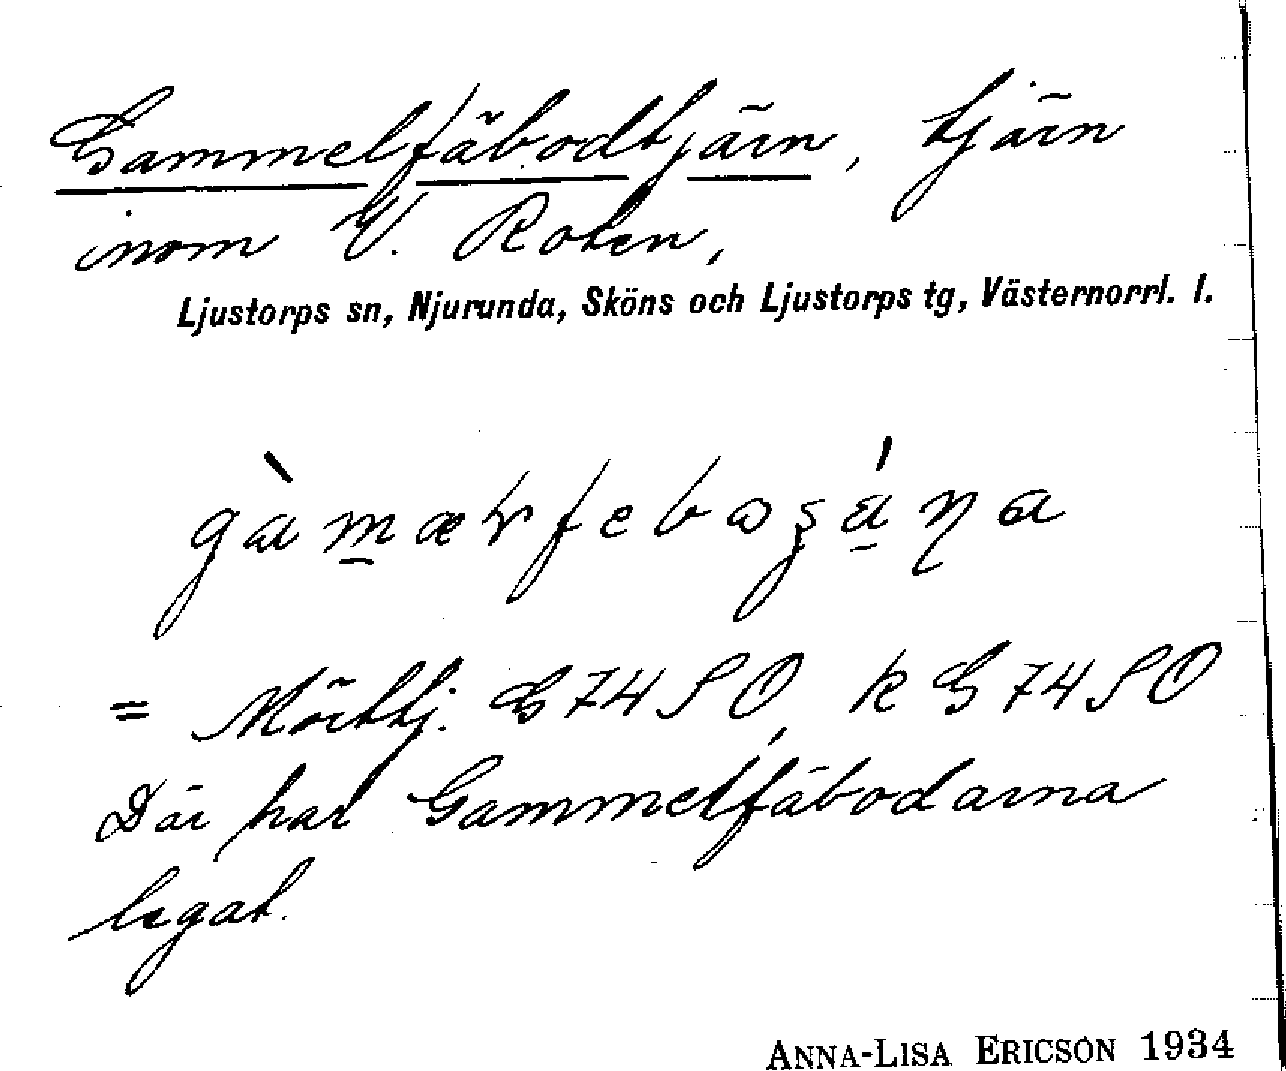 Gammelfäbodtjärn, tjärn
inom V. Roten,
Ljustorps sn, Njurunda, Sköns och Ljustorps tg, Västernorrl. l.
= Mörttj. G 74 SO, k G 74 SO
Där har Gammelfäbodarna
legat.
ANNA-LISA ERICSON 1934